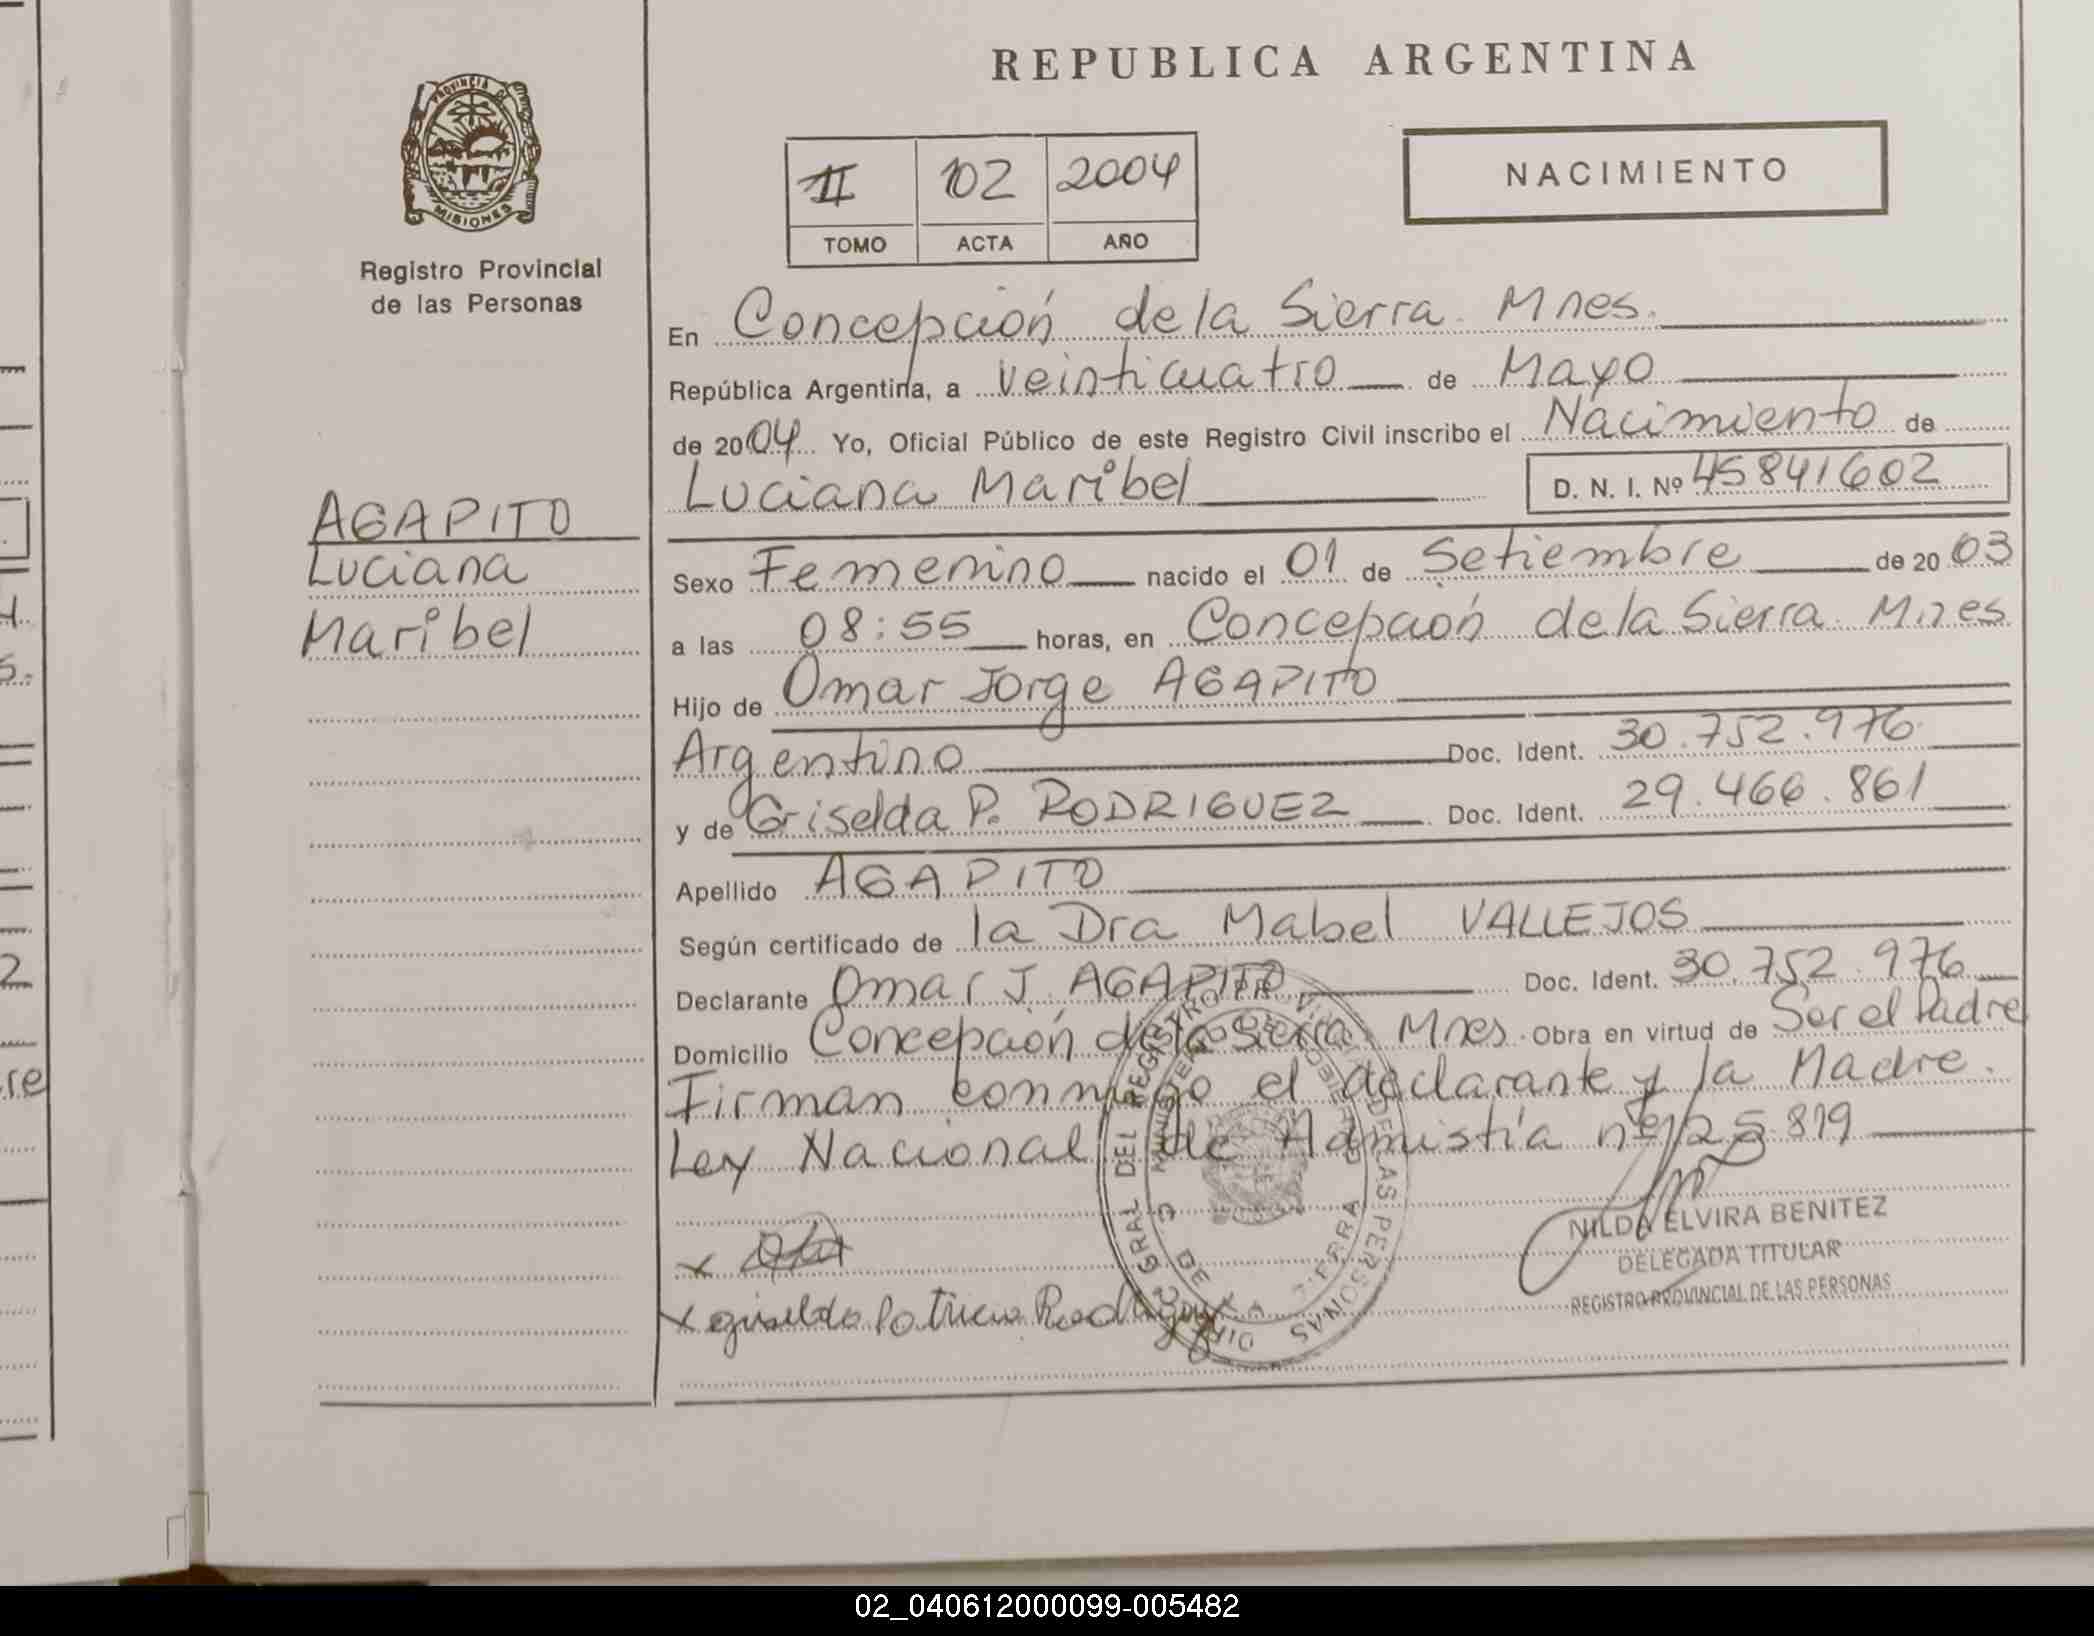 REPUBLICA ARGENTINA
PROVINCIA DE
MISIONES
Registro Provincial
de las Personas
II 102 2004
TOMO ACTA AÑO
NACIMIENTO
En Concepción de la Sierra. Mnes.
República Argentina, a veinticuatro de Mayo
de 2004 Yo, Oficial Público de este Registro Civil inscribo el Nacimiento de
Luciana Maribel D. N. I. Nº 45841602
AGAPITO
Luciana
Maribel
Sexo Femenino nacido el 01 de Setiembre de 2003
a las 08:55 horas, en Concepción de la Sierra. Mnes
Hijo de Omar Jorge AGAPITO
Argentino Doc. Ident. 30.752.976
y de Griselda P. RODRIGUEZ Doc. Ident. 29.466.861
Apellido AGAPITO
Según certificado de la Dra Mabel VALLEJOS
Declarante Omar J. AGAPITO Doc. Ident. 30.752.976
Domicilio Concepción de la Sierra. Mnes. Obra en virtud de Ser el Padre
Firman conmigo el declarante y la Madre.
Ley Nacional de Admistía nº 25.819
NILDA ELVIRA BENITEZ
DELEGADA TITULAR
REGISTRO PROVINCIAL DE LAS PERSONAS
x
x griselda Patricia Rodriguez
DIR. GRAL DEL REGISTRO PROVINCIAL DE LAS PERSONAS
02_040612000099-005482